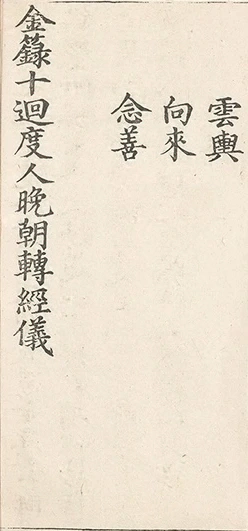 雲輿
向來
念善
金籙十迴度人晚朝轉經儀